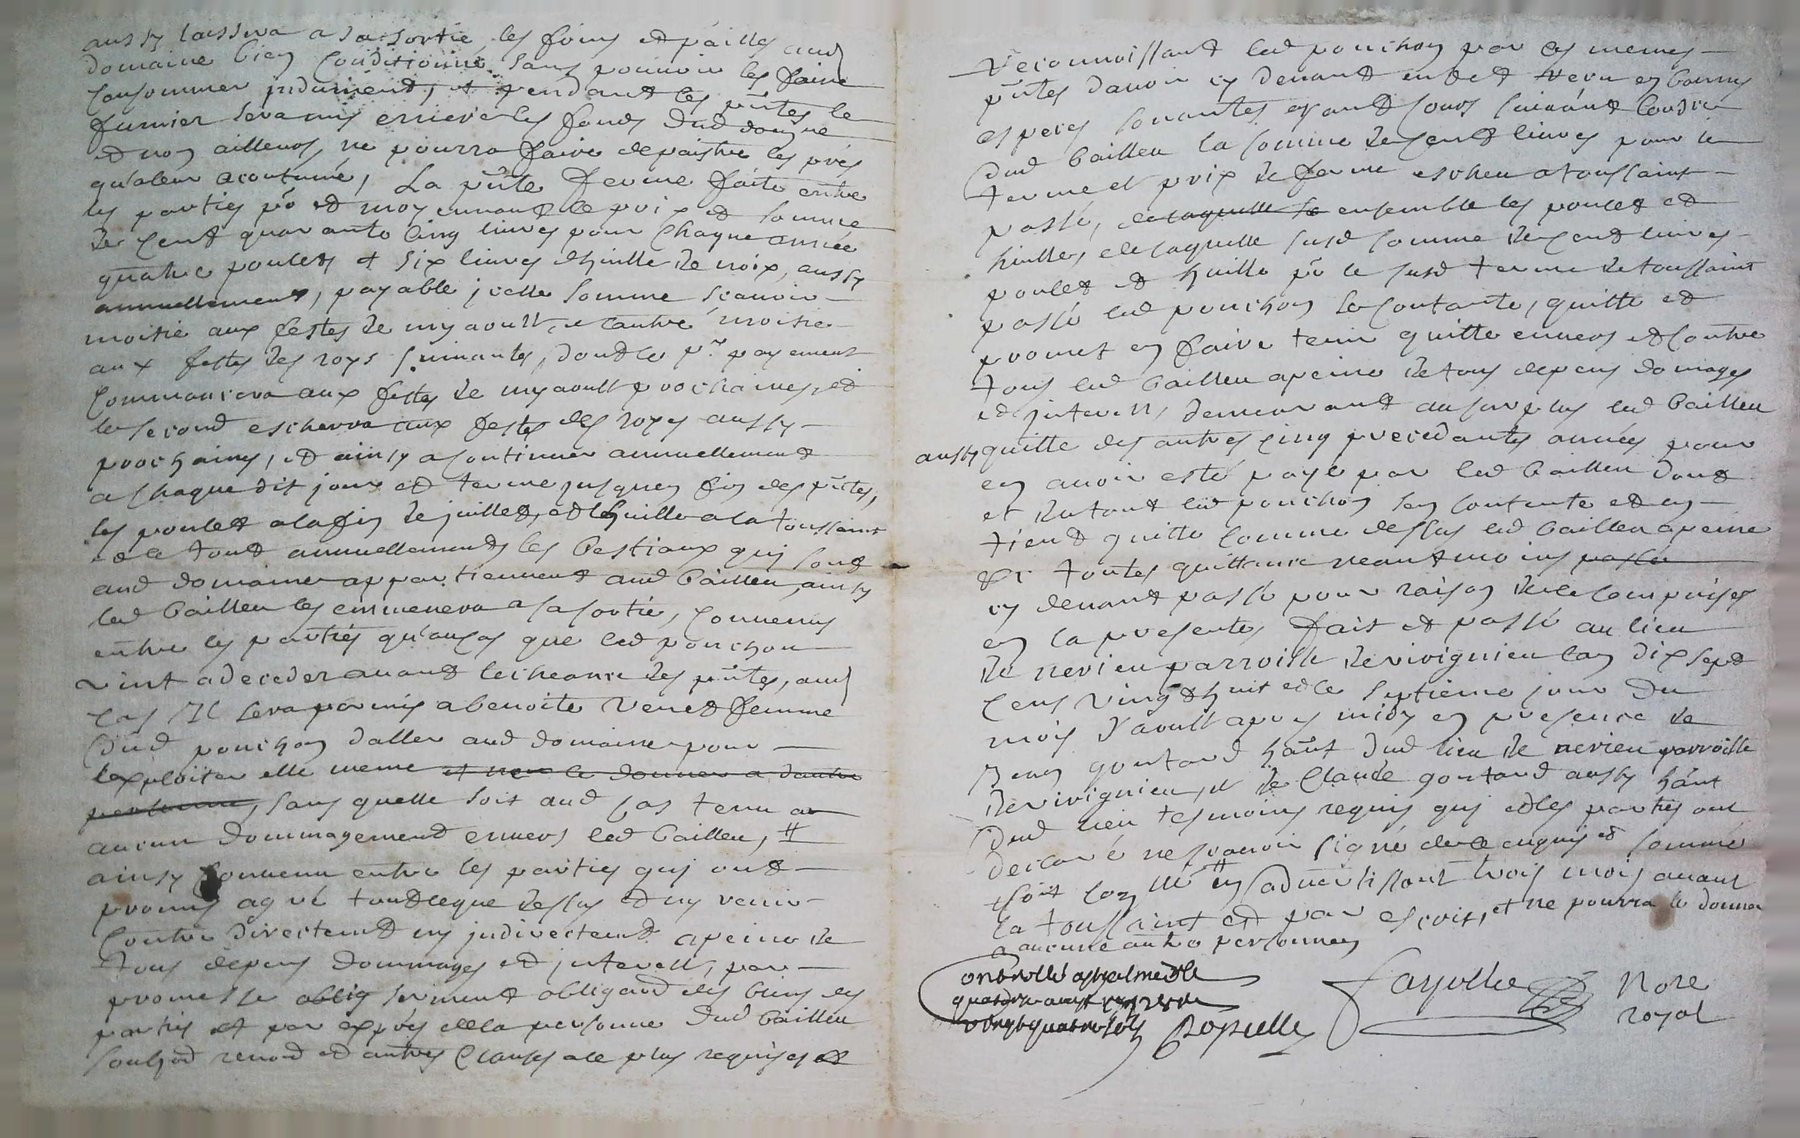 aussy laissera a sa sortie les foins et pailles aud
domaine bien conditionné sans pouvoir les faire
consommer induement, et pendant les pñtes le
fumier sera mis enriere les fonds dud domaine
et non ailleurs, ne pourra faire depaistre les prés
qu'aleur acoutumé, La pñte ferme faite entre
les parties po et moyennant le prix et somme
de cent quarante cinq livres pour chaque année
quatre poulets et six livres d'huille de noix, aussy
annuellement, payable jcelle somme scavoir
moitié aux festes de my aoust, et l'autre moitié
aux festes des roys suivantes, dont le pr payement
commancera aux festes de my aoust prochaines, et
le second escherra aux festes des roys aussy
prochaines, et ainsy a continuer annuellement
a chaque dit jour et terme jusques fin des pñtes,
les poulets a la fin de juillet, et lhuille a la toussaint
et le tout annuellement, les bestiaux qui sont
aud domaine appartiennent aud bailleu, ainsy
led bailleu les emmenera a sa sortie, convenus
entre les parties qu'au cas que led ponchon
vint a deceder avant lecheance des pñtes, aud
cas Il sera permis a benoite Venet femme
dud ponchon daller aud domaine pour
lexploiter elle meme et non le donner a dautre
personne, sans quelle soit aud cas tenu au
aucun dommagement envers led bailleu, #
ainsy convenu entre les parties qui ont
promis agréé tout ce que dessus et ny venir
contre directemt ny indirectemt a peine de
tous depens dommages et interests, par
promesse oblig serment obligeant des biens des
parties et par exprés de la personne dud bailleu
soubzon renon et autres clauses a ce plus requises et
reconnoissant led ponchon par ces memes
pñtes davoir cy devant en det receu en bonnes
especes sonnantes ayant cours suivant
dud bailleu la somme de cent livres pour le
terme et prix de ferme escheu a toussaint
passé, de laquelle so ensemble les poulet et
huilles, de laquelle susd somme de cent livres
poulet et huille po le susd terme de toussaint
passé led ponchon se contante, quitte et
promet en faire tenir quitte envers et contre
tous led bailleu a peine de tous depens domages
et interests, demeurant au surplus led bailleu
aussy quitte des autres cinq precedantes années pour
en avoir esté payé par led bailleu dont
et du tout led ponchon sen contente et en
tient quitte comme dessus led bailleu a peine
de toutes quittance neantmoins passée
cy devant passé pour raison de ce comprises
en la presente, fait et passé au lieu
de nerieu parroisse de virignieu lan dix sept
cens vingt huit et le septieme jour du
mois d'aoust apres midy en presence de
Jean goutard hãnt dud lieu de nerieu parroisse
de virignieu, et de Claude goutard aussy hãnt
dud lieu tesmoins requis qui et les parties ont
declaré ne scavoir signé de ce enquis et sommé
soit con lle # en advertissant trois mois avant
la toussaint et par escrit, et ne pourra le donner
a aucune autre personnes
controllé a st galmier le
quatorze aoust 1728
vingt quatre sols
Fayolle Nore
royal